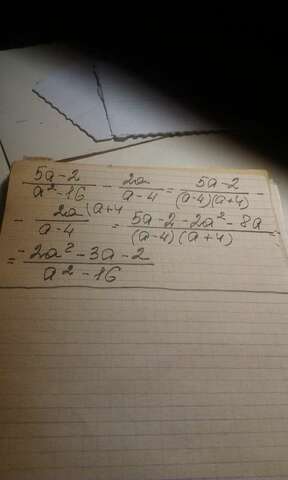 (5a-2)/(a²-16) - 2a/(a-4) = (5a-2)/((a-4)(a+4)) -
- 2a\a+4/(a-4) = (5a-2-2a²-8a)/((a-4)(a+4)) =
= (-2a²-3a-2)/(a²-16)